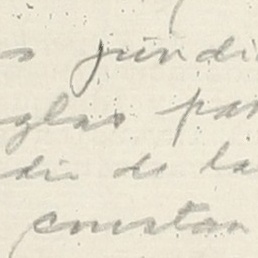 s jurídi
glas par
die de la
constan